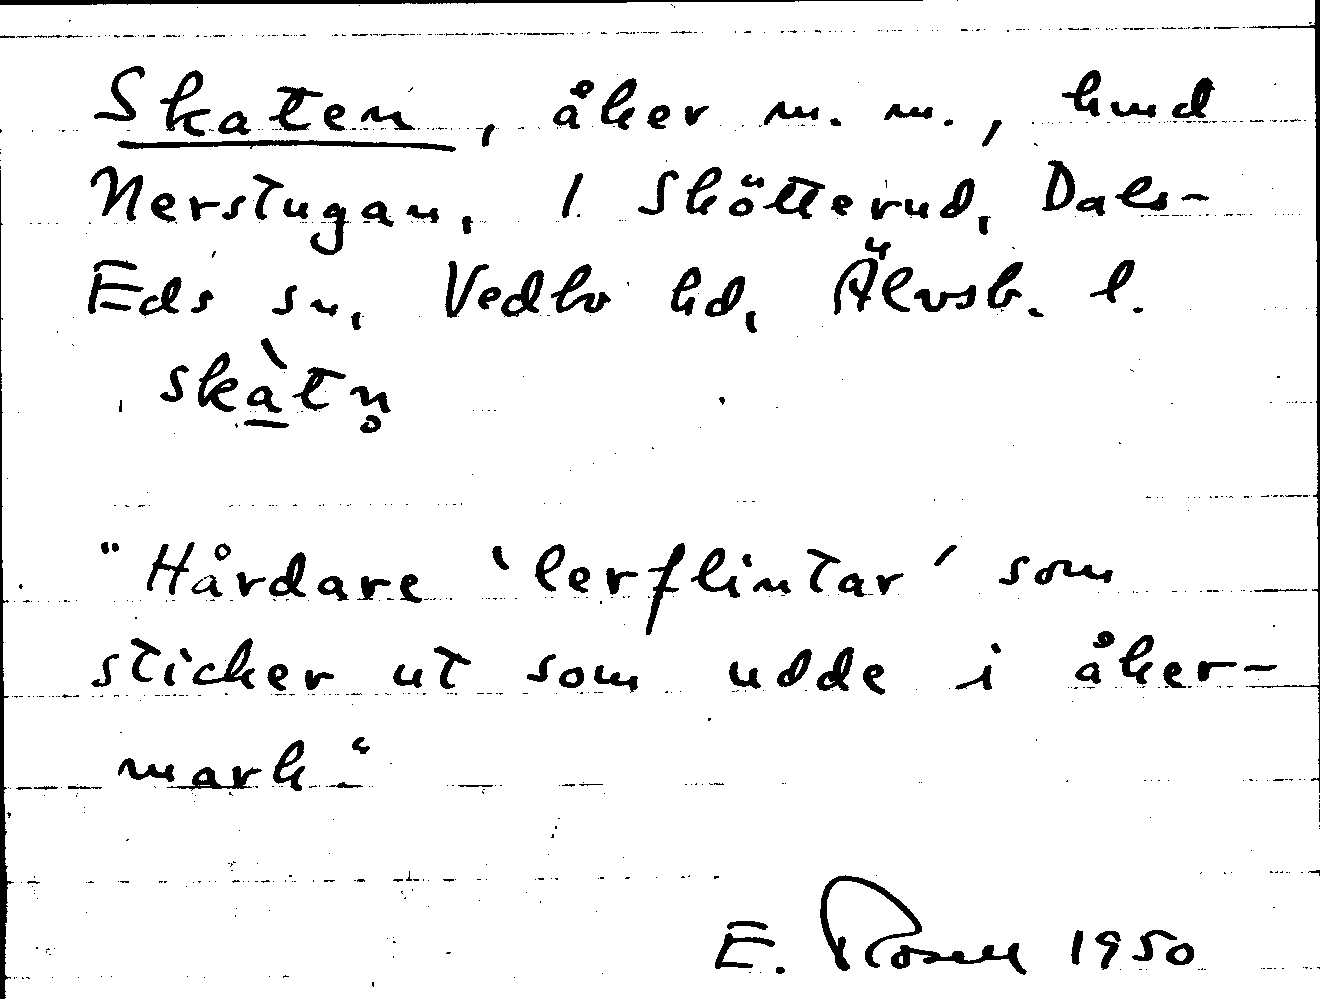 Skaten, åker m. m., hmd
Nerstugan, 1 Skötterud, Dals-
Eds sn, Vedbo hd, Älvsb. l.
skà̱tn̥
"Hårdare 'lerflintar' som
sticker ut som udde i åker-
mark."
E. Rosell 1950